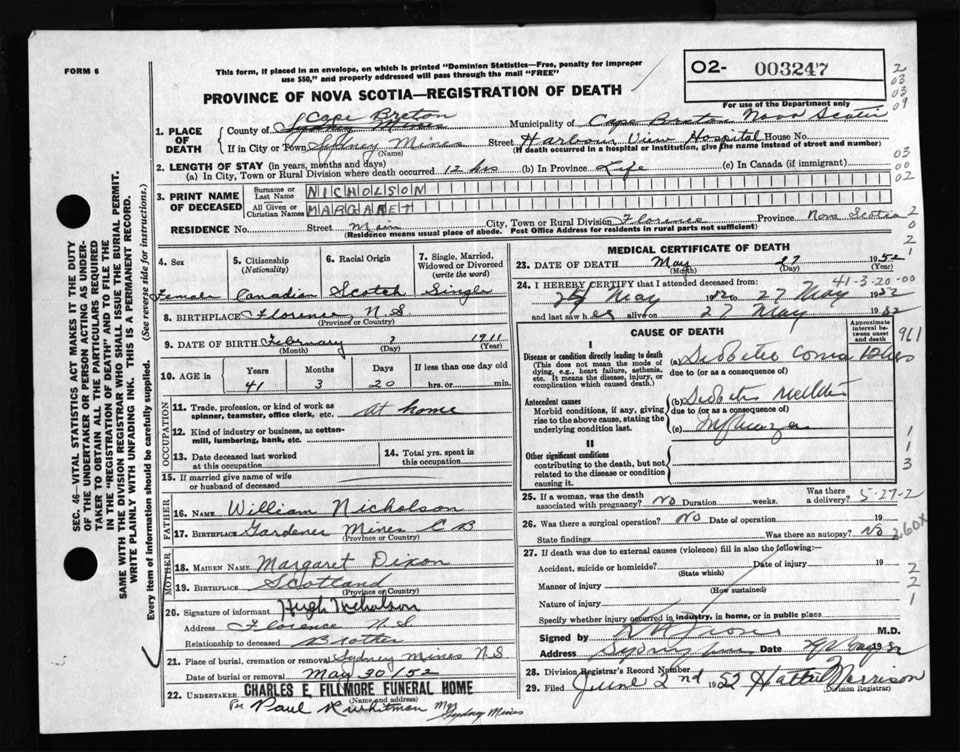 FORM 6
This form, if placed in an envelope, on which is printed "Dominion Statistics—Free, penalty for improper
use $50," and properly addressed will pass through the mail "FREE"
PROVINCE OF NOVA SCOTIA—REGISTRATION OF DEATH
O2- 003247
For use of the Department only
2
03
03
09
03
00
02
2
0
2
1. PLACE OF DEATH
County of Sydney Mines Cape Breton Municipality of Cape Breton Nova Scotia
If in City or Town Sydney Mines Street Harbour View Hospital House No.
(Name) (If death occurred in a hospital or institution, give the name instead of street and number)
2. LENGTH OF STAY (in years, months and days)
(a) In City, Town or Rural Division where death occurred 12 hrs (b) In Province Life (c) In Canada (if immigrant)
3. PRINT NAME OF DECEASED
Surname or Last Name NICHOLSON
All Given or Christian Names MARGARET
RESIDENCE No. Street Main City, Town or Rural Division Florence Province Nova Scotia
(Residence means usual place of abode. Post Office Address for residents in rural parts not sufficient)
4. Sex Female
5. Citizenship (Nationality) Canadian
6. Racial Origin Scotch
7. Single, Married, Widowed or Divorced (write the word) Single
8. BIRTHPLACE Florence, N.S.
(Province or Country)
9. DATE OF BIRTH February 7 1911
(Month) (Day) (Year)
10. AGE in Years Months Days If less than one day old
41 3 20 hrs. or min.
OCCUPATION
11. Trade, profession, or kind of work as
spinner, teamster, office clerk, etc. at home
12. Kind of industry or business, as cotton-
mill, lumbering, bank, etc.
13. Date deceased last worked
at this occupation
14. Total yrs. spent in
this occupation
15. If married give name of wife
or husband of deceased
FATHER
16. Name William Nicholson
17. Birthplace Gardener Mines C B
(Province or Country)
MOTHER
18. MAIDEN NAME Margaret Dixon
19. BIRTHPLACE Scotland
(Province or Country)
20. Signature of informant Hugh Nicholson
Address Florence N.S.
Relationship to deceased Brother
21. Place of burial, cremation or removal Sydney Mines N.S
Date of burial or removal May 30/52
22. UNDERTAKER CHARLES E. FILLMORE FUNERAL HOME
(Name and address)
Per Paul Mgr
Sydney Mines
MEDICAL CERTIFICATE OF DEATH
23. DATE OF DEATH May 27 1952
(Month) (Day) (Year)
41-3-20-00
24. I HEREBY CERTIFY that I attended deceased from:
27 May 1952 to 27 May 1952
and last saw her alive on 27 May 1952
CAUSE OF DEATH
Approximate interval between onset and death
961
I
Disease or condition directly leading to death
(This does not mean the mode of
dying, e.g., heart failure, asthenia,
etc. It means the disease, injury, or
complication which caused death.)
(a) Diabetic Coma
due to (or as a consequence of)
Antecedent causes
Morbid conditions, if any, giving
rise to the above cause, stating the
underlying condition last.
(b) Diabetes Mellitus
due to (or as a consequence of)
(c) Influenza
II
Other significant conditions
contributing to the death, but not
related to the disease or condition
causing it.
1
1
3
25. If a woman, was the death
associated with pregnancy? No Duration weeks. Was there
a delivery? 5-27-2
26. Was there a surgical operation? No Date of operation 19
State findings Was there an autopsy? No 260X
27. If death was due to external causes (violence) fill in also the following:—
Accident, suicide or homicide? Date of injury 19
(State which)
Manner of injury
(How sustained)
Nature of injury
Specify whether injury occurred in industry, in home, or in public place
2
2
1
Signed by M.D.
Address Sydney Mines Date May 1952
28. Division Registrar's Record Number
29. Filed June 2nd 1952 Hattie Morrison
(Division Registrar)
SEC. 46—VITAL STATISTICS ACT MAKES IT THE DUTY
OF THE UNDERTAKER OR PERSON ACTING AS UNDER-
TAKER TO OBTAIN ALL THE PARTICULARS REQUIRED
IN THE "REGISTRATION OF DEATH" AND TO FILE THE
SAME WITH THE DIVISION REGISTRAR WHO SHALL ISSUE THE BURIAL PERMIT.
WRITE PLAINLY WITH UNFADING INK. THIS IS A PERMANENT RECORD.
Every item of information should be carefully supplied. (See reverse side for instructions.)